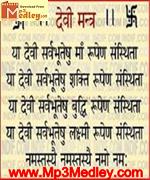 Download From
Mp3
Medley.com
卐 ।। देवी मन्त्र ।। 卐
या देवी सर्वभूतेषु माँ रूपेण संस्थिता
या देवी सर्वभूतेषु शक्ति रूपेण संस्थिता
या देवी सर्वभूतेषु बुद्धि रूपेण संस्थिता
या देवी सर्वभूतेषु लक्ष्मी रूपेण संस्थिता
नमस्तस्यै नमस्तस्यै नमो नमः
www.Mp3Medley.com